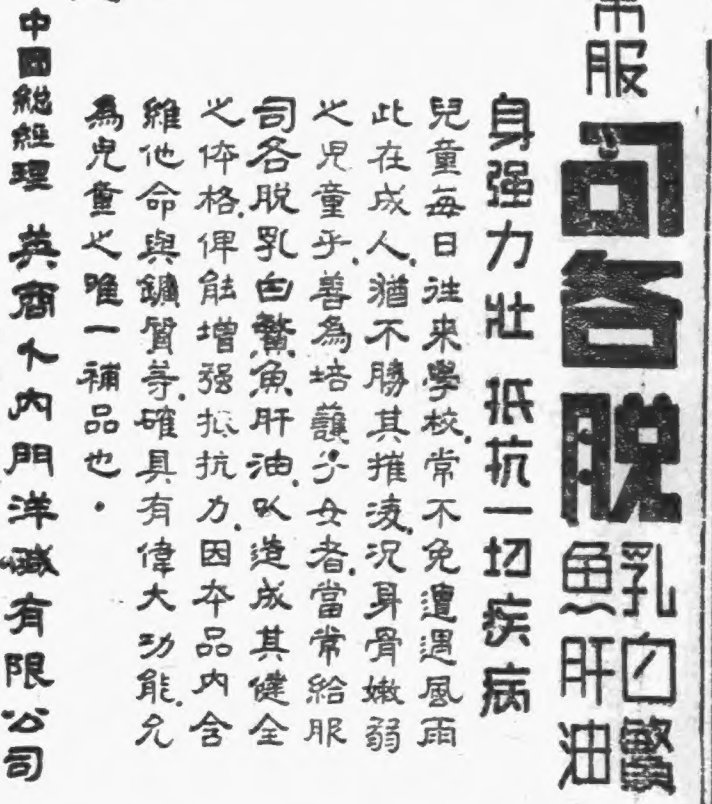 服
司各脫
乳白鰵
魚肝油
身强力壯 抵抗一切疾病
兒童每日往來學校、常不免遭遇風雨
此在成人、猶不勝其摧凌、況身骨嫩弱
之児童乎、善為培護子女者、當常給服
司各脫乳白鰵魚肝油、以造成其健全
之体格、俾能增强抵抗力、因本品内含
維他命與鑛質等、確具有偉大功能、允
為兒童之唯一補品也。
中國總經理 英商卜内門洋鹼有限公司